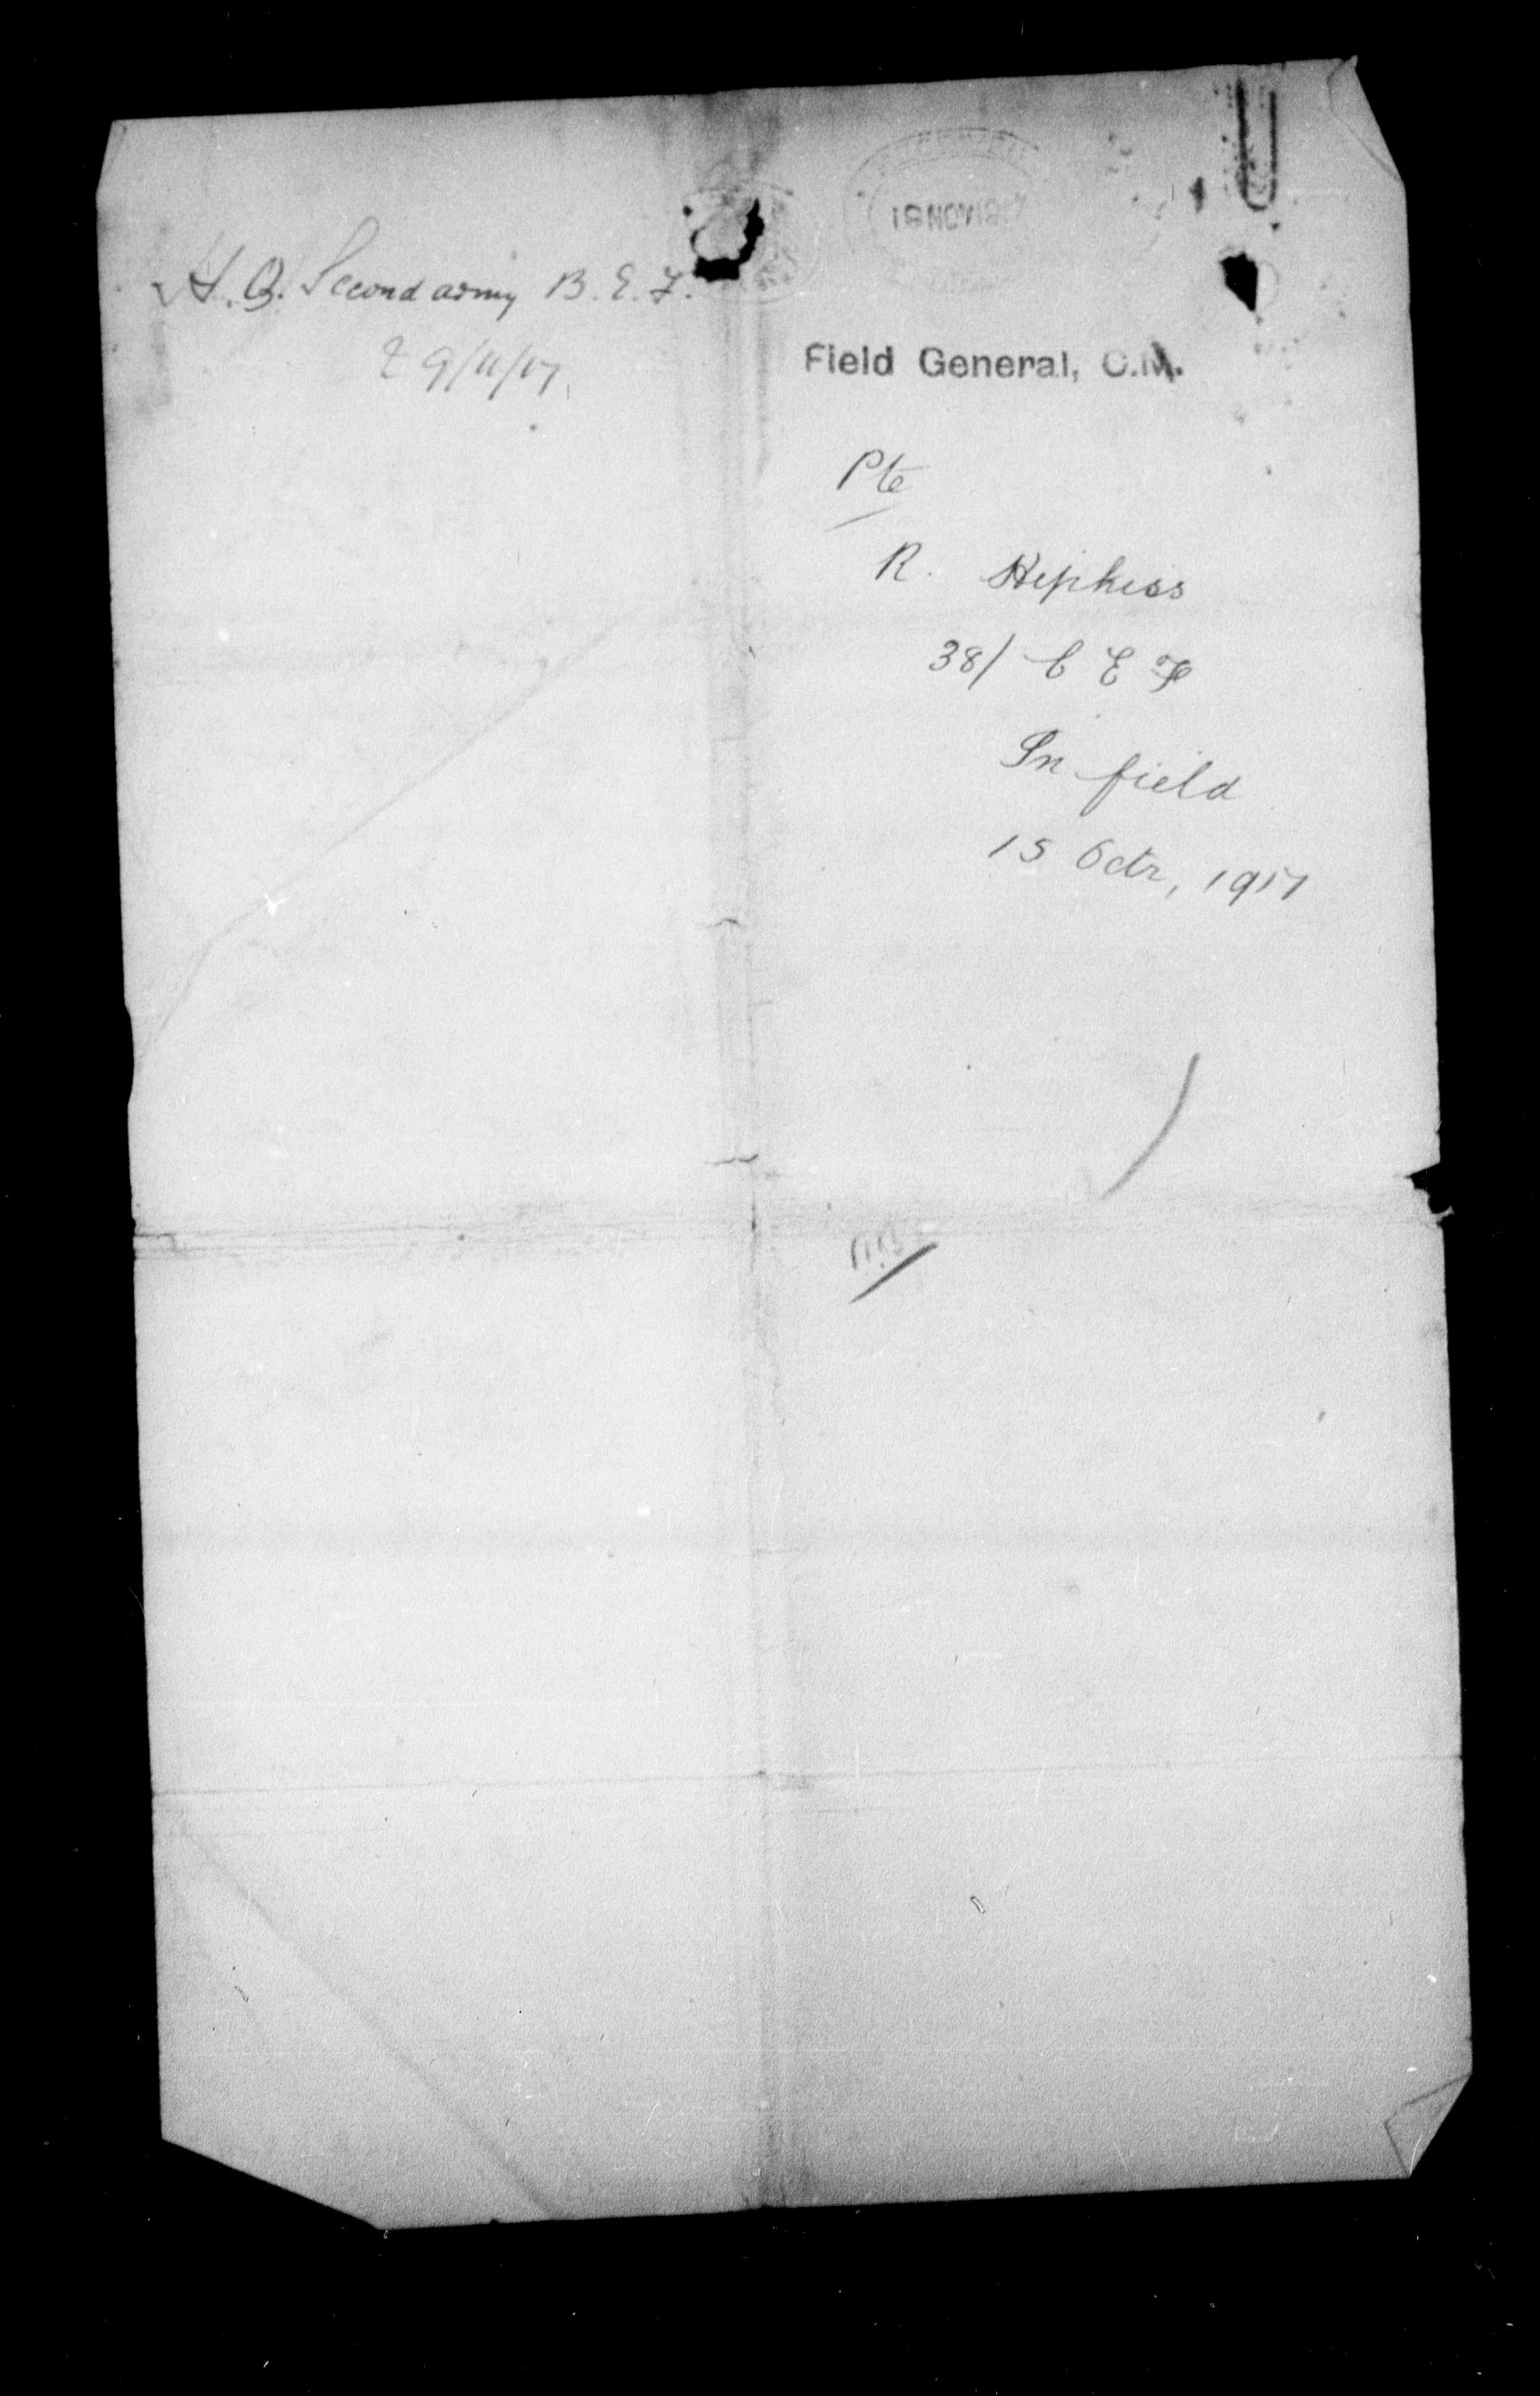 18 NOV 1917
H.Q. Second army B.E.F.
29/11/17
Field General, C.M.
Pte
R. Hipkiss
38/ C E F
In field
15 Octr, 1917